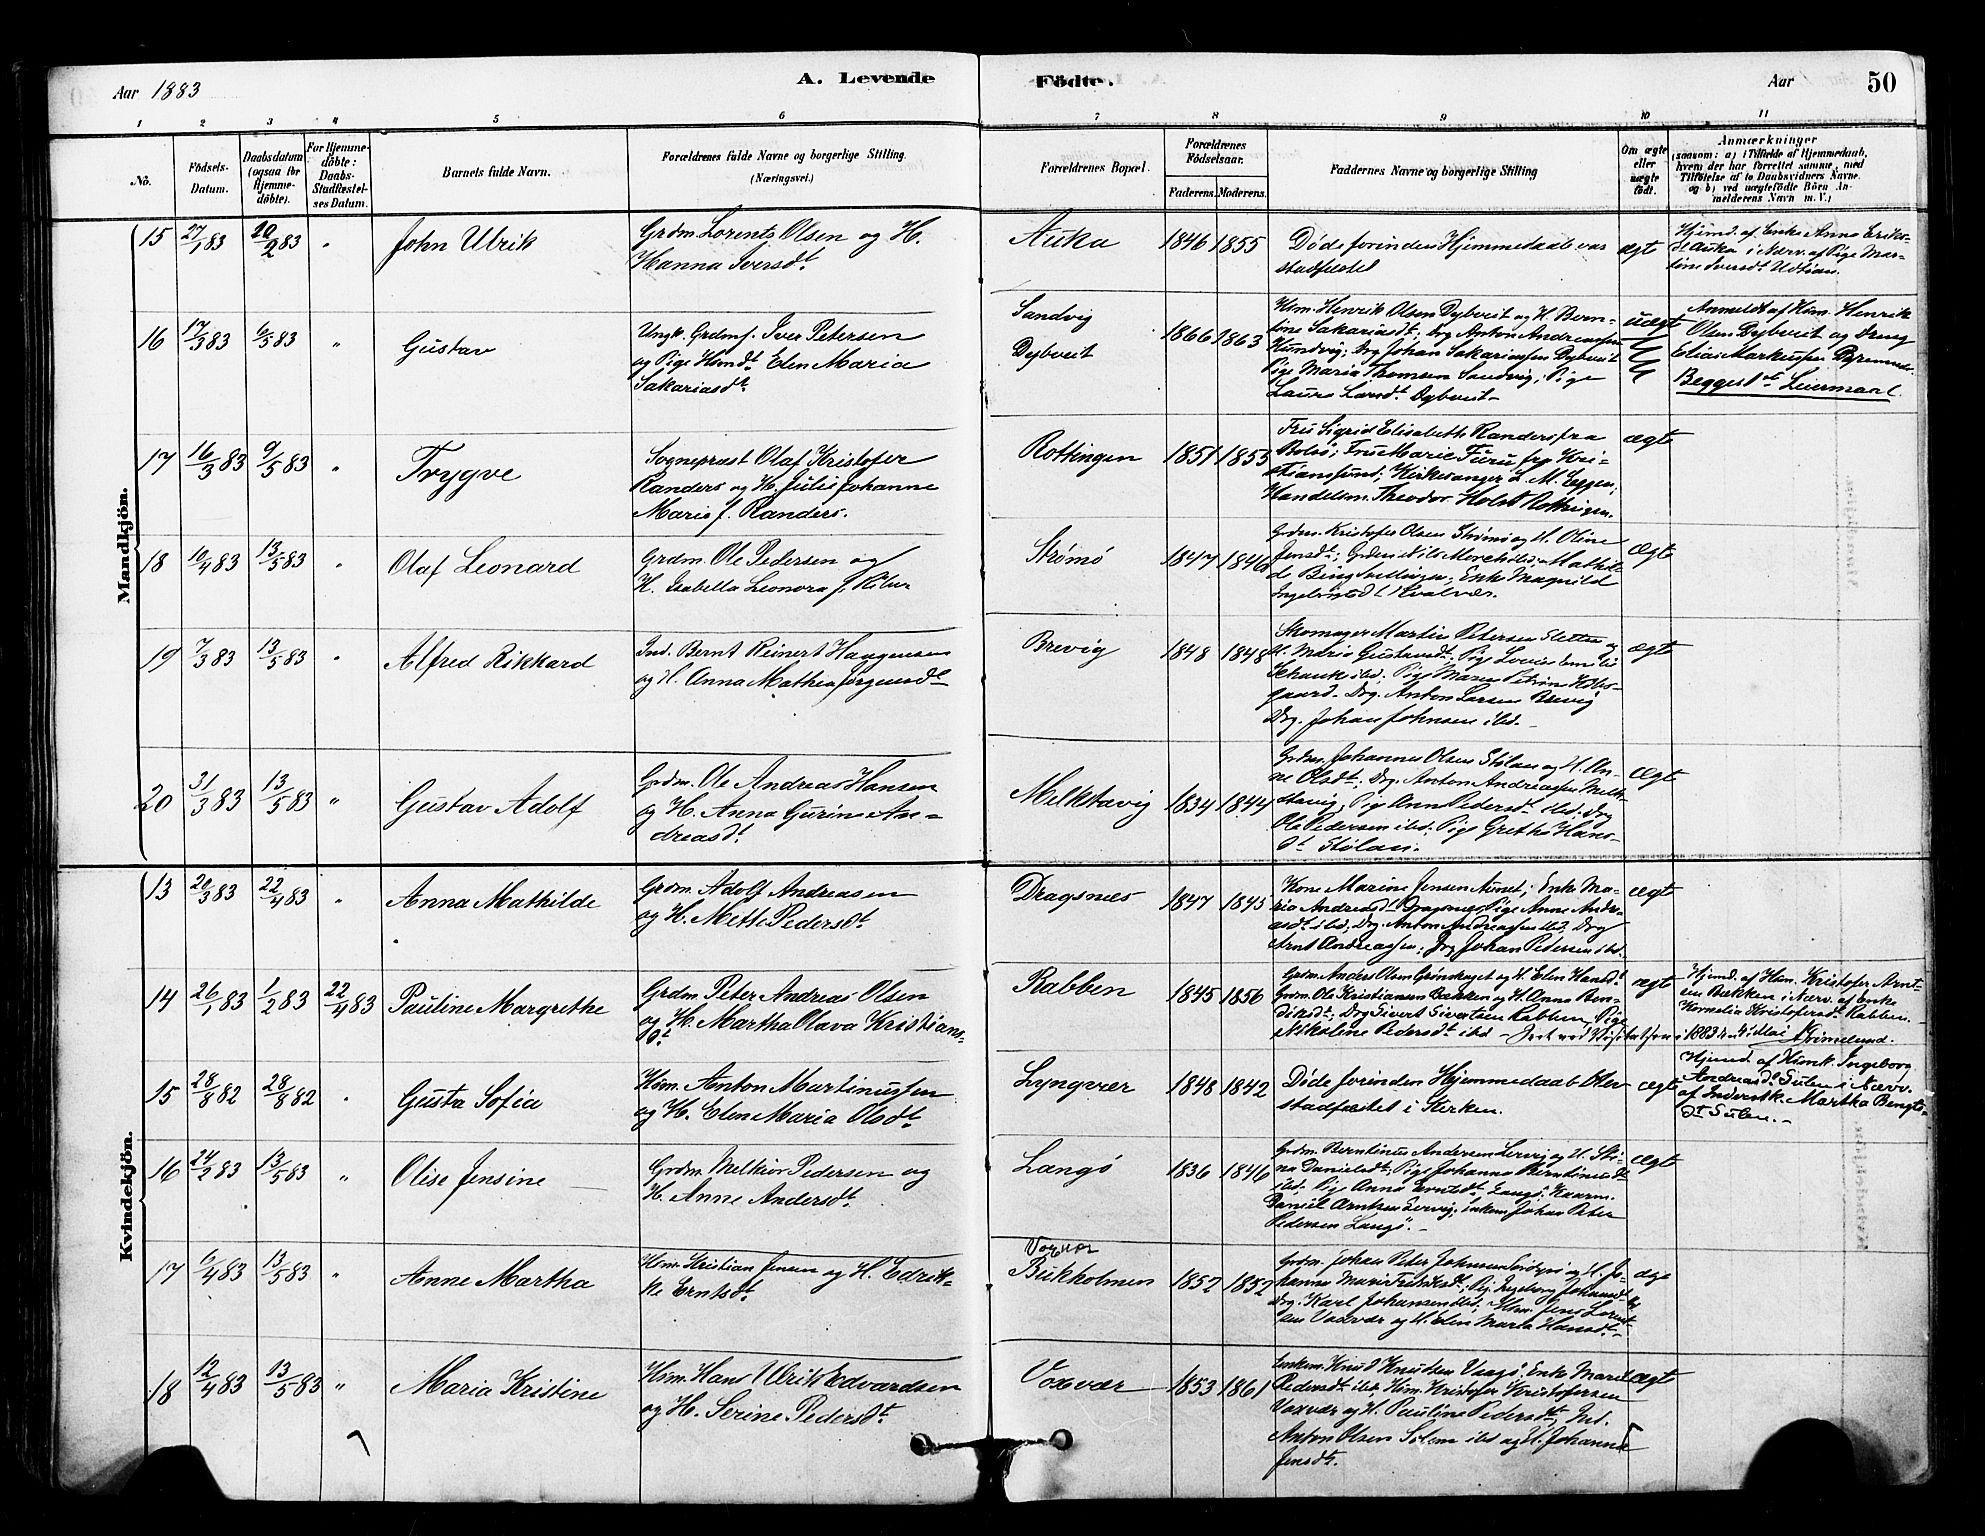 Aar 1883
A. Levende
Födte.
Aar
50
1 2 3 4 5 6 7 8 9 10 11
No.
Födsels-
Datum.
Daabsdatum
(ogsaa for
Hjemme-
döbte).
For Hjemme-
döbte:
Daabs-
Stadfæstel-
ses Datum.
Barnets fulde Navn.
Forældrenes fulde Navne og borgerlige Stilling.
(Næringsvei.)
Forældrenes Bopæl.
Forældrenes
Födselsaar.
Faderens. Moderens.
Faddernes Navne og borgerlige Stilling
Om ægte
eller
uægte
födt.
Anmærkninger
(saasom: a) i Tilfælde af Hjemmedaab,
hvem der har forrettet samme, med
Tilföielse af to Daabsvidners Navne
og b) ved uægtefödte Börn An-
melderens Navn m. V.)
Mandkjön.
15 27/1 83 20/2 83 " John Ulrik
Grdm. Lorents Olsen og H.
Hanna Iversdt
Auka 1846 1855
Døde forinden Hjemmedaab var
stadfæstet
ægt
Hjmd. af Enke Anna Eriks-
dt Auka i Nærv. af Pige Mar-
16 17/3 83 6/5 83 " Gustav
Ungk. Grdmf. Iver Petersen
og Pige Hsmdt Elen Maria
Sakariasdt
Sandvig
Dybveit
1866 1863
Hsm. Henrik Olsen Dybveit og H. Bern-
tine Sakariasdt; Ung. Anton Andreassen
Kundvig; Drg Johan Sakariassen Dybveit
Pige Maria Thomsen Sandvig; Pige
Laura Larsdt Dybveit
uægt
Anmeldt af Hsm. Henrik
Olsen Dybveit og Dreng
Elias Markussen
Begges 1ste Leiermaal.
17 16/3 83 9/5 83 " Trygve
Sogneprest Olaf Kristofer
Randers og H. Julis Johanne
Marie f. Randers.
Rottingen 1851 1855
Fru Sigrid Elisabeth Randers fra
Bolsø; Fru Marie Furu fra Kri-
stianssund; Kirkesanger L. M. Eggen;
Handelsm. Theodor Holst Rottingen.
ægte
18 10/4 83 13/5 83 " Olaf Leonard
Grdm. Ole Pedersen og
H. Isabella Leonora f.
Strømö 1847 1846
Grdm. Kristofer Olsen Strömö og H. Oline
Jensdt; Grdm Nils
Enke Magnild
Ingebrigtsdt Kvalvær.
ægt
19 7/3 83 13/5 83 " Alfred Rikkard
Ind. Bernt Reinert Haagensen
og H. Anna Mathea Jørgensdt
Brevig 1848 1848
Skomager Martin Petersen Sletta og
H. Maria Gustavsdt; Pige Lovise Emilie
Schank ibd. Pige Maren Petrine Hols-
gaard. Drg. Anton Larsen Brevig
Drg. Johan Johnsen ibd.
ægt
20 31/3 83 13/5 83 " Gustav Adolf
Grdm. Ole Andreas Hansen
og H. Anna Gurine An-
dreasdt
Melkstavig 1834 1844
Grdm. Johannes Olsen Stølan og H. An-
ne Olsdt; Drg. Anton Andreassen Melk-
stavig; Pige Ann Pedersdt ibd. Drg
Ole Pedersen ibd. Pige Grethe Hans-
dt Stølan.
ægt
Kvindekjön.
13 20/3 83 22/4 83 " Anna Mathilde
Grdm. Adolf Andreasen
og H. Mette Pedersdt
Dragsnes 1847 1845
Kone Marine Jensen Aunet; Enke Ma-
ria Andreasdt Dragsnes; Pige Anne Andre-
asdt ibd; Drg. Anton Andreassen ibd; Drg
Arnt Andreassen; Drg Johan Petersen ibd.
ægt
14 26/1 83 1/2 83 22/4 83 Pauline Margrethe
Grdm. Peter Andreas Olsen
og H. Martha Olava Kristians-
dt
Rabben 1845 1856
Grdm. Anders Olsen Grønskaget og H. Elen Hansdt
Grdm. Ole Kristiansen Bakken og H. Anna Ben-
diksdt; Drg Sivert Sivertsen Rabben, Pige
Nikoline Pedersdt ibd
ægt
Hjmd. af Hsm. Kristofer Arnt-
sen Bakken i Nærv. af Enke
Kornelia Kristofersdt Rabben.
15 28/8 82 28/8 82 " Gusta Sofia
Hsm. Anton Martinussen
og H. Elen Maria Olsdt
Lyngvær 1848 1842
Døde forinden Hjemmedaab blev
stadfæstet i Kirken.
ægt
Hjmd. af Hsmk. Ingeborg
Andreasdt Sulen i Nærv.
af Inderstk. Martha Bengts-
dt Sulen.
16 24/2 83 13/5 83 " Olise Jensine
Grdm. Melkior Pedersen og
H. Anne Andersdt
Langö 1836 1846
Grdm. Berntinus Andersen Lervig og H. Sti-
na Danielsdt; Pige Johanna Berntinusdt
ibd; Pige Anna Arntsdt Langö;
Daniel Arntsen Lervig; Enkem. Johan Peter
Pedersen Langö.
ægt
17 6/4 83 13/5 83 " Anne Martha
Hsm. Kristian Jensen og H. Edrik-
ke Erntsdt
Voxvær
Bukholmen 1852 1852
Grdm. Johan Peter Johansen
og H. Jo-
hanna Maria Fredriksdt; Pig. Ingeborg Johansdt
Drg. Karl Johansen ibd; Hsm. Jens Lorent-
sen Voxvær og H. Elen Maria Hansdt
18 12/4 83 13/5 83 " Maria Kristine
Hsm. Hans Ulrik Edvardsen
og H. Serine Pedersdt
Voxvær 1853 1861
Enkem. Knud Knudsen Vaagö; Enke Maret
Pedersdt ibd; Hsm. Kristofer Kristofersen
Voxvær og H. Pauline Pedersdt; Ind.
Anton Olsen Solem ibd og H. Johanna
Jensdt.
ægt